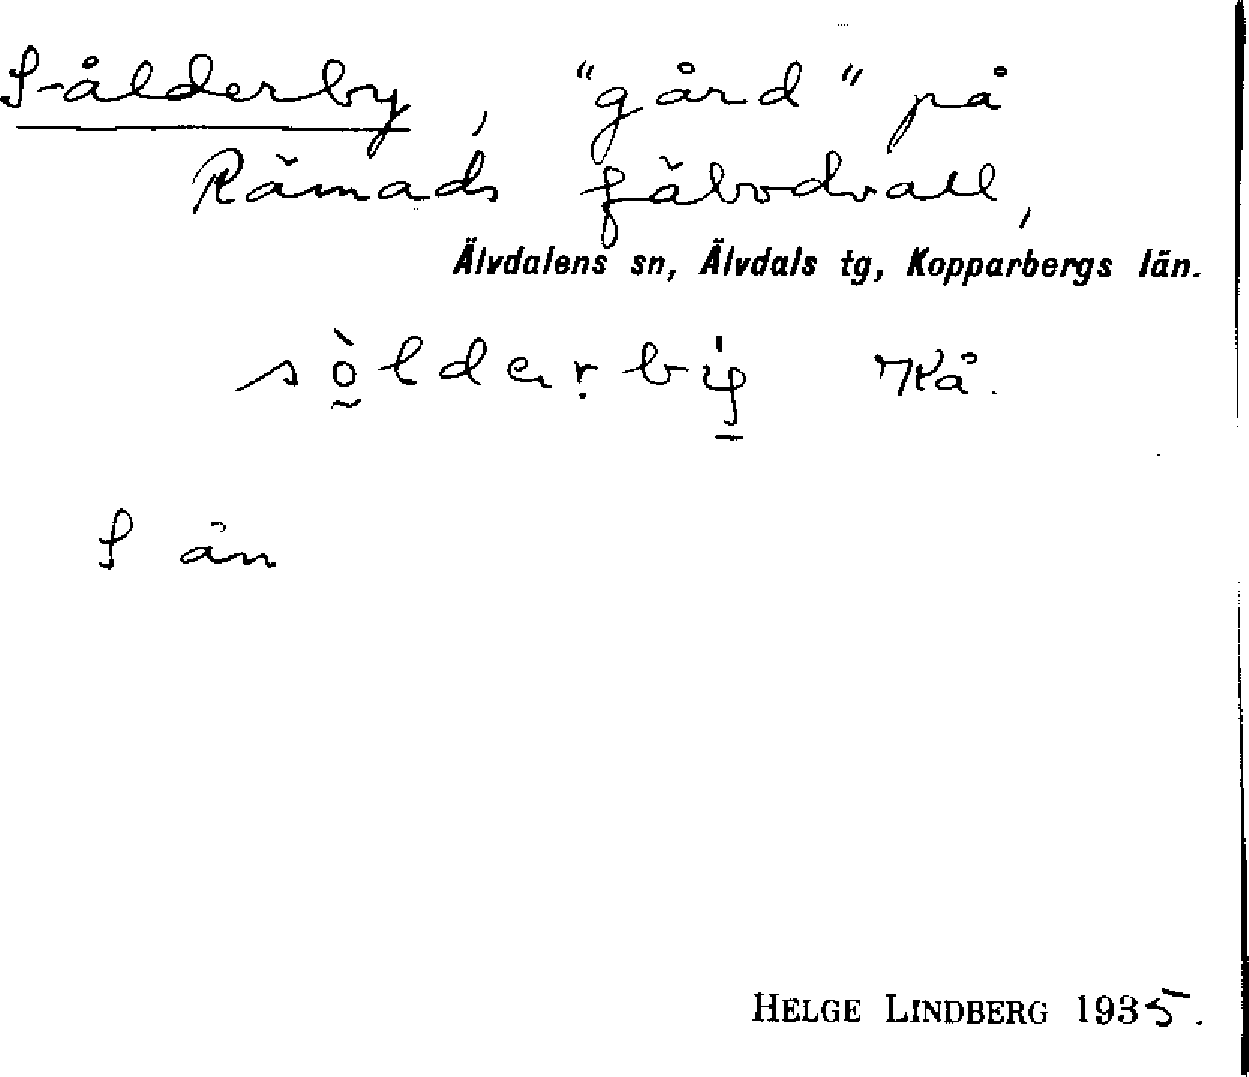 Sålderby, "gård" på
Rämads fäbodvall,
Älvdalens sn, Älvdals tg, Kopparbergs län.
S ån
HELGE LINDBERG 1935.